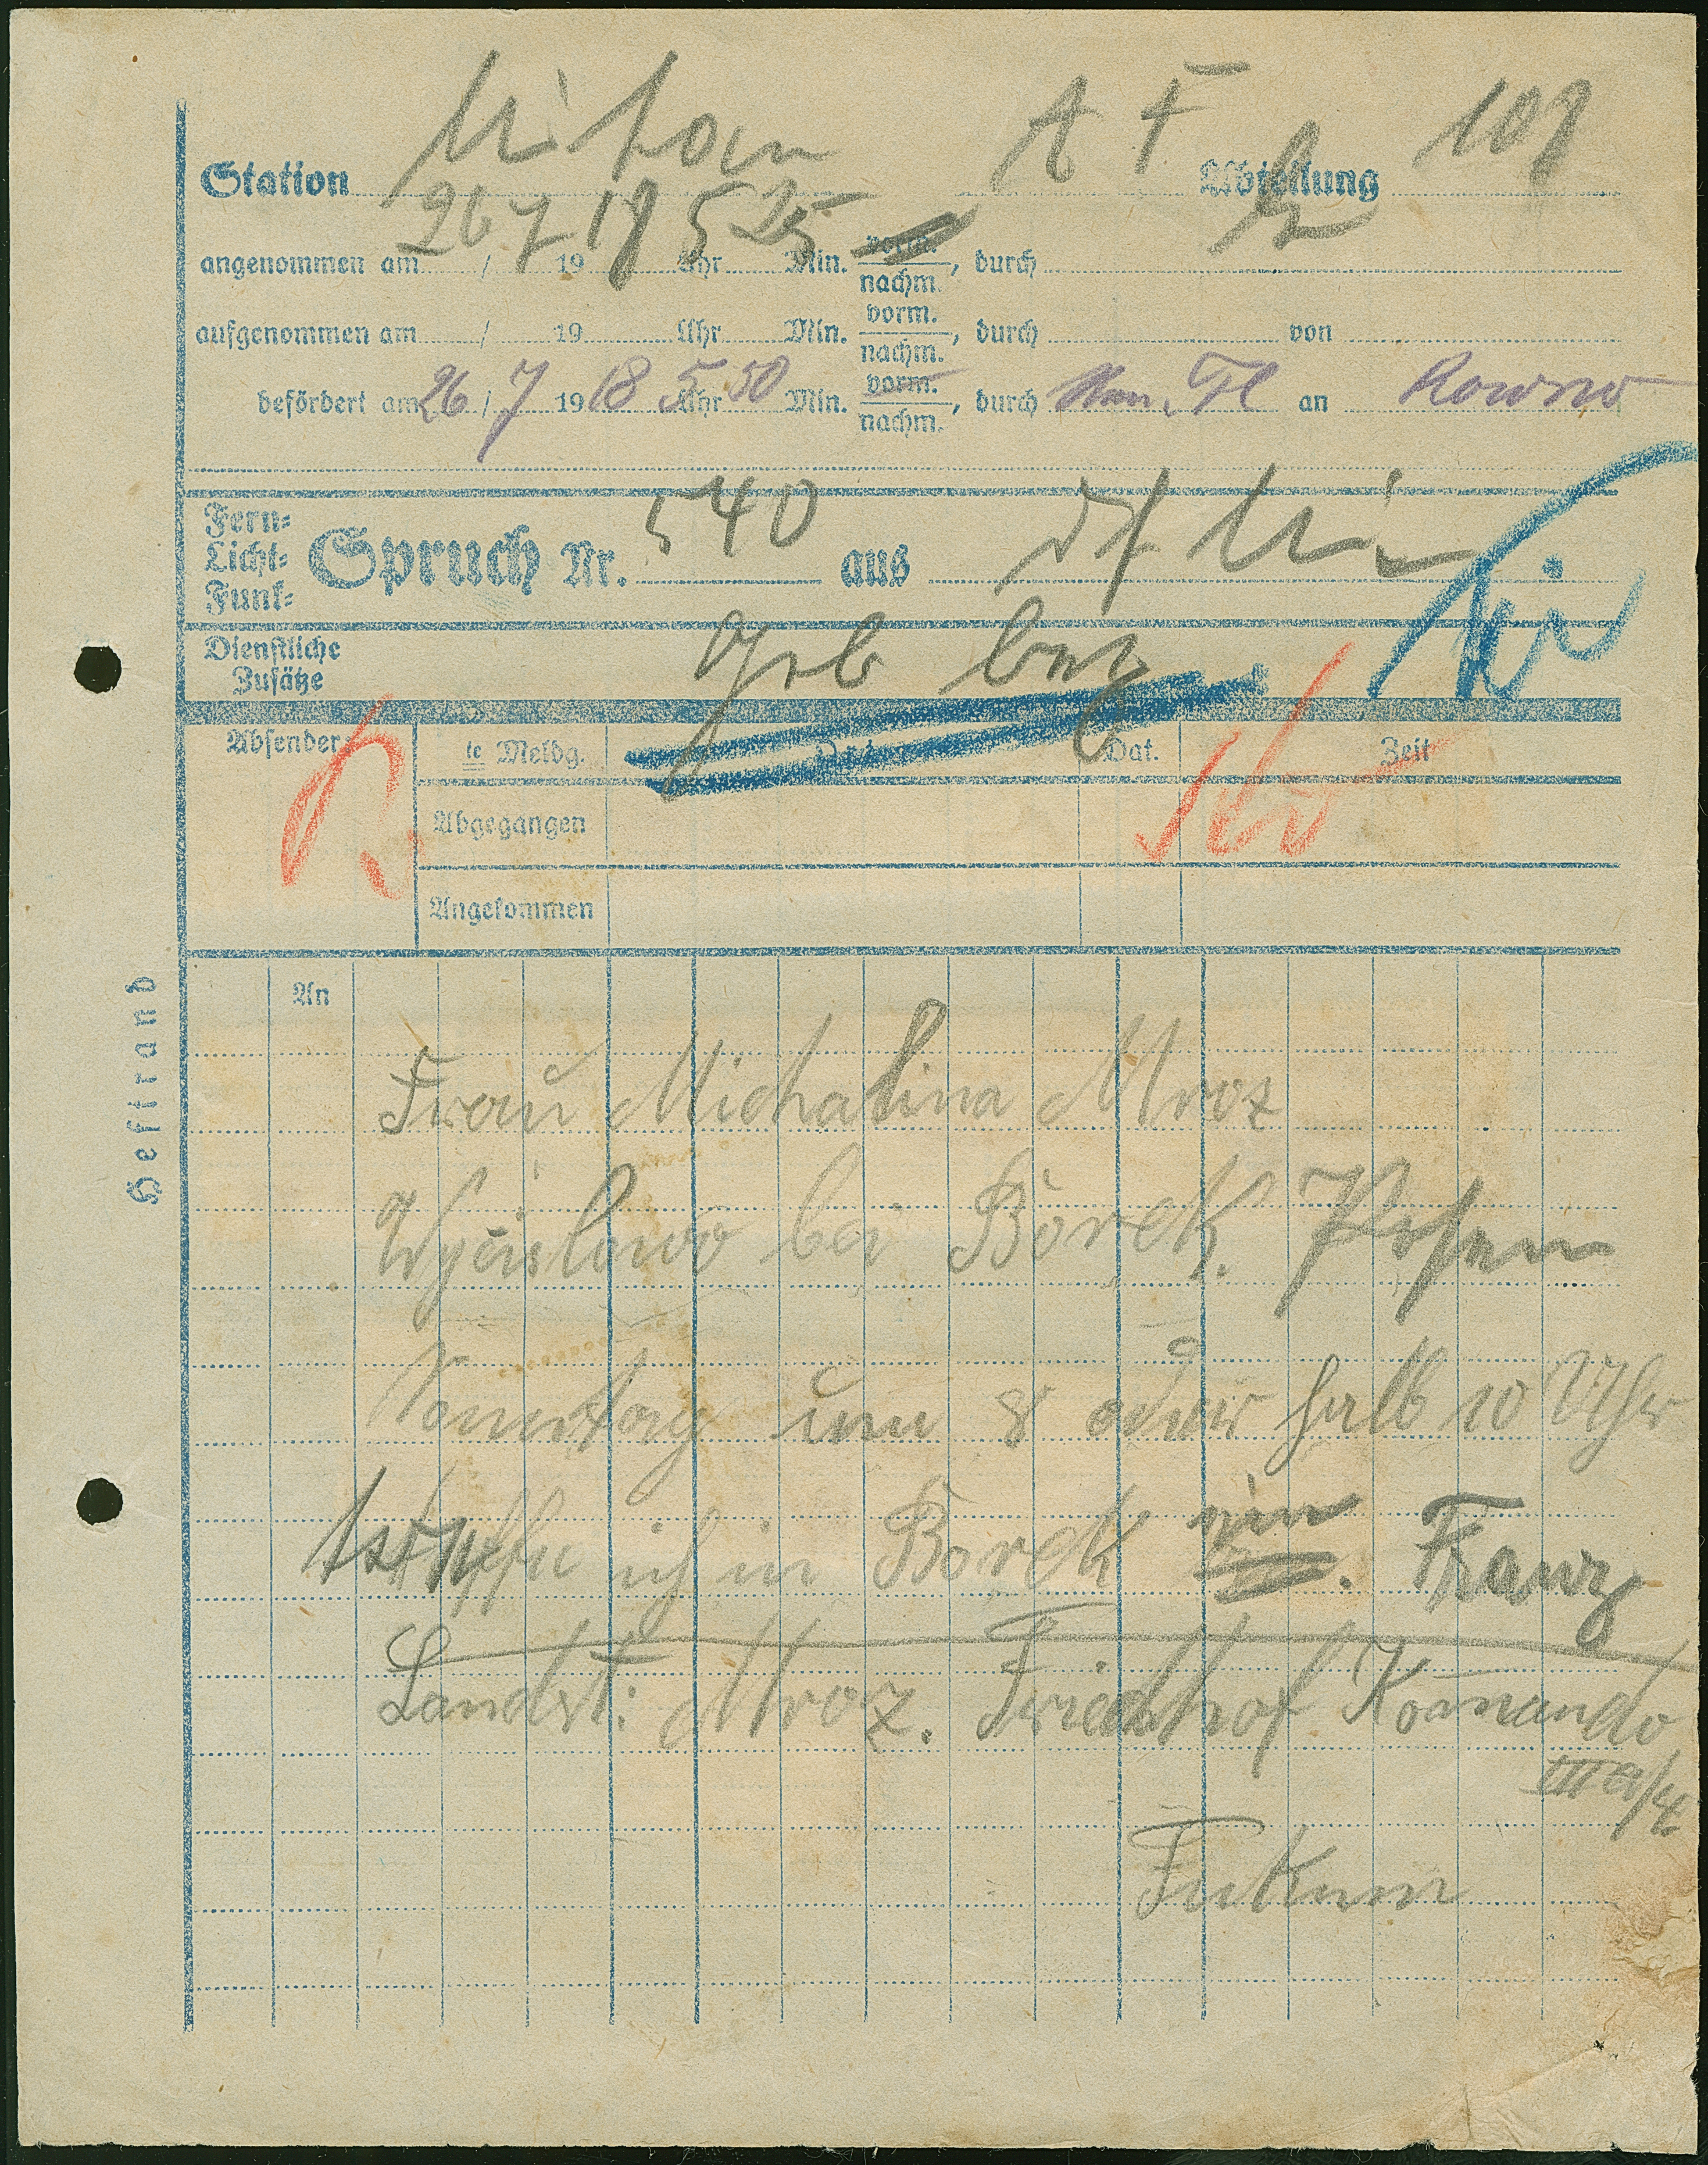 Station Mitau A F Abteilung 108
angenommen am 26 / 7 1918 5 Uhr 25 Min. vorm. nachm., durch
aufgenommen am / 19 Uhr Min. vorm. nachm., durch von
befördert am 26 / 7 1918 5 Uhr 50 Min. vorm. nachm., durch an Kowno
Fern-
Licht-
Funk-
Spruch Nr. 540 aus
Dienstliche
Zusätze
geb bez
Absender:
te Meldg. Ort Dat. Zeit
Abgegangen
Angekommen
Heftrand
An
Frau Michalina Mroz
bei Borek. Posen
Sonntag um 8 oder halb 10 Uhr
treffe ich in Borek ein. Franz
Landst: Mroz. Friedhof Komando
III a/4
Tukum